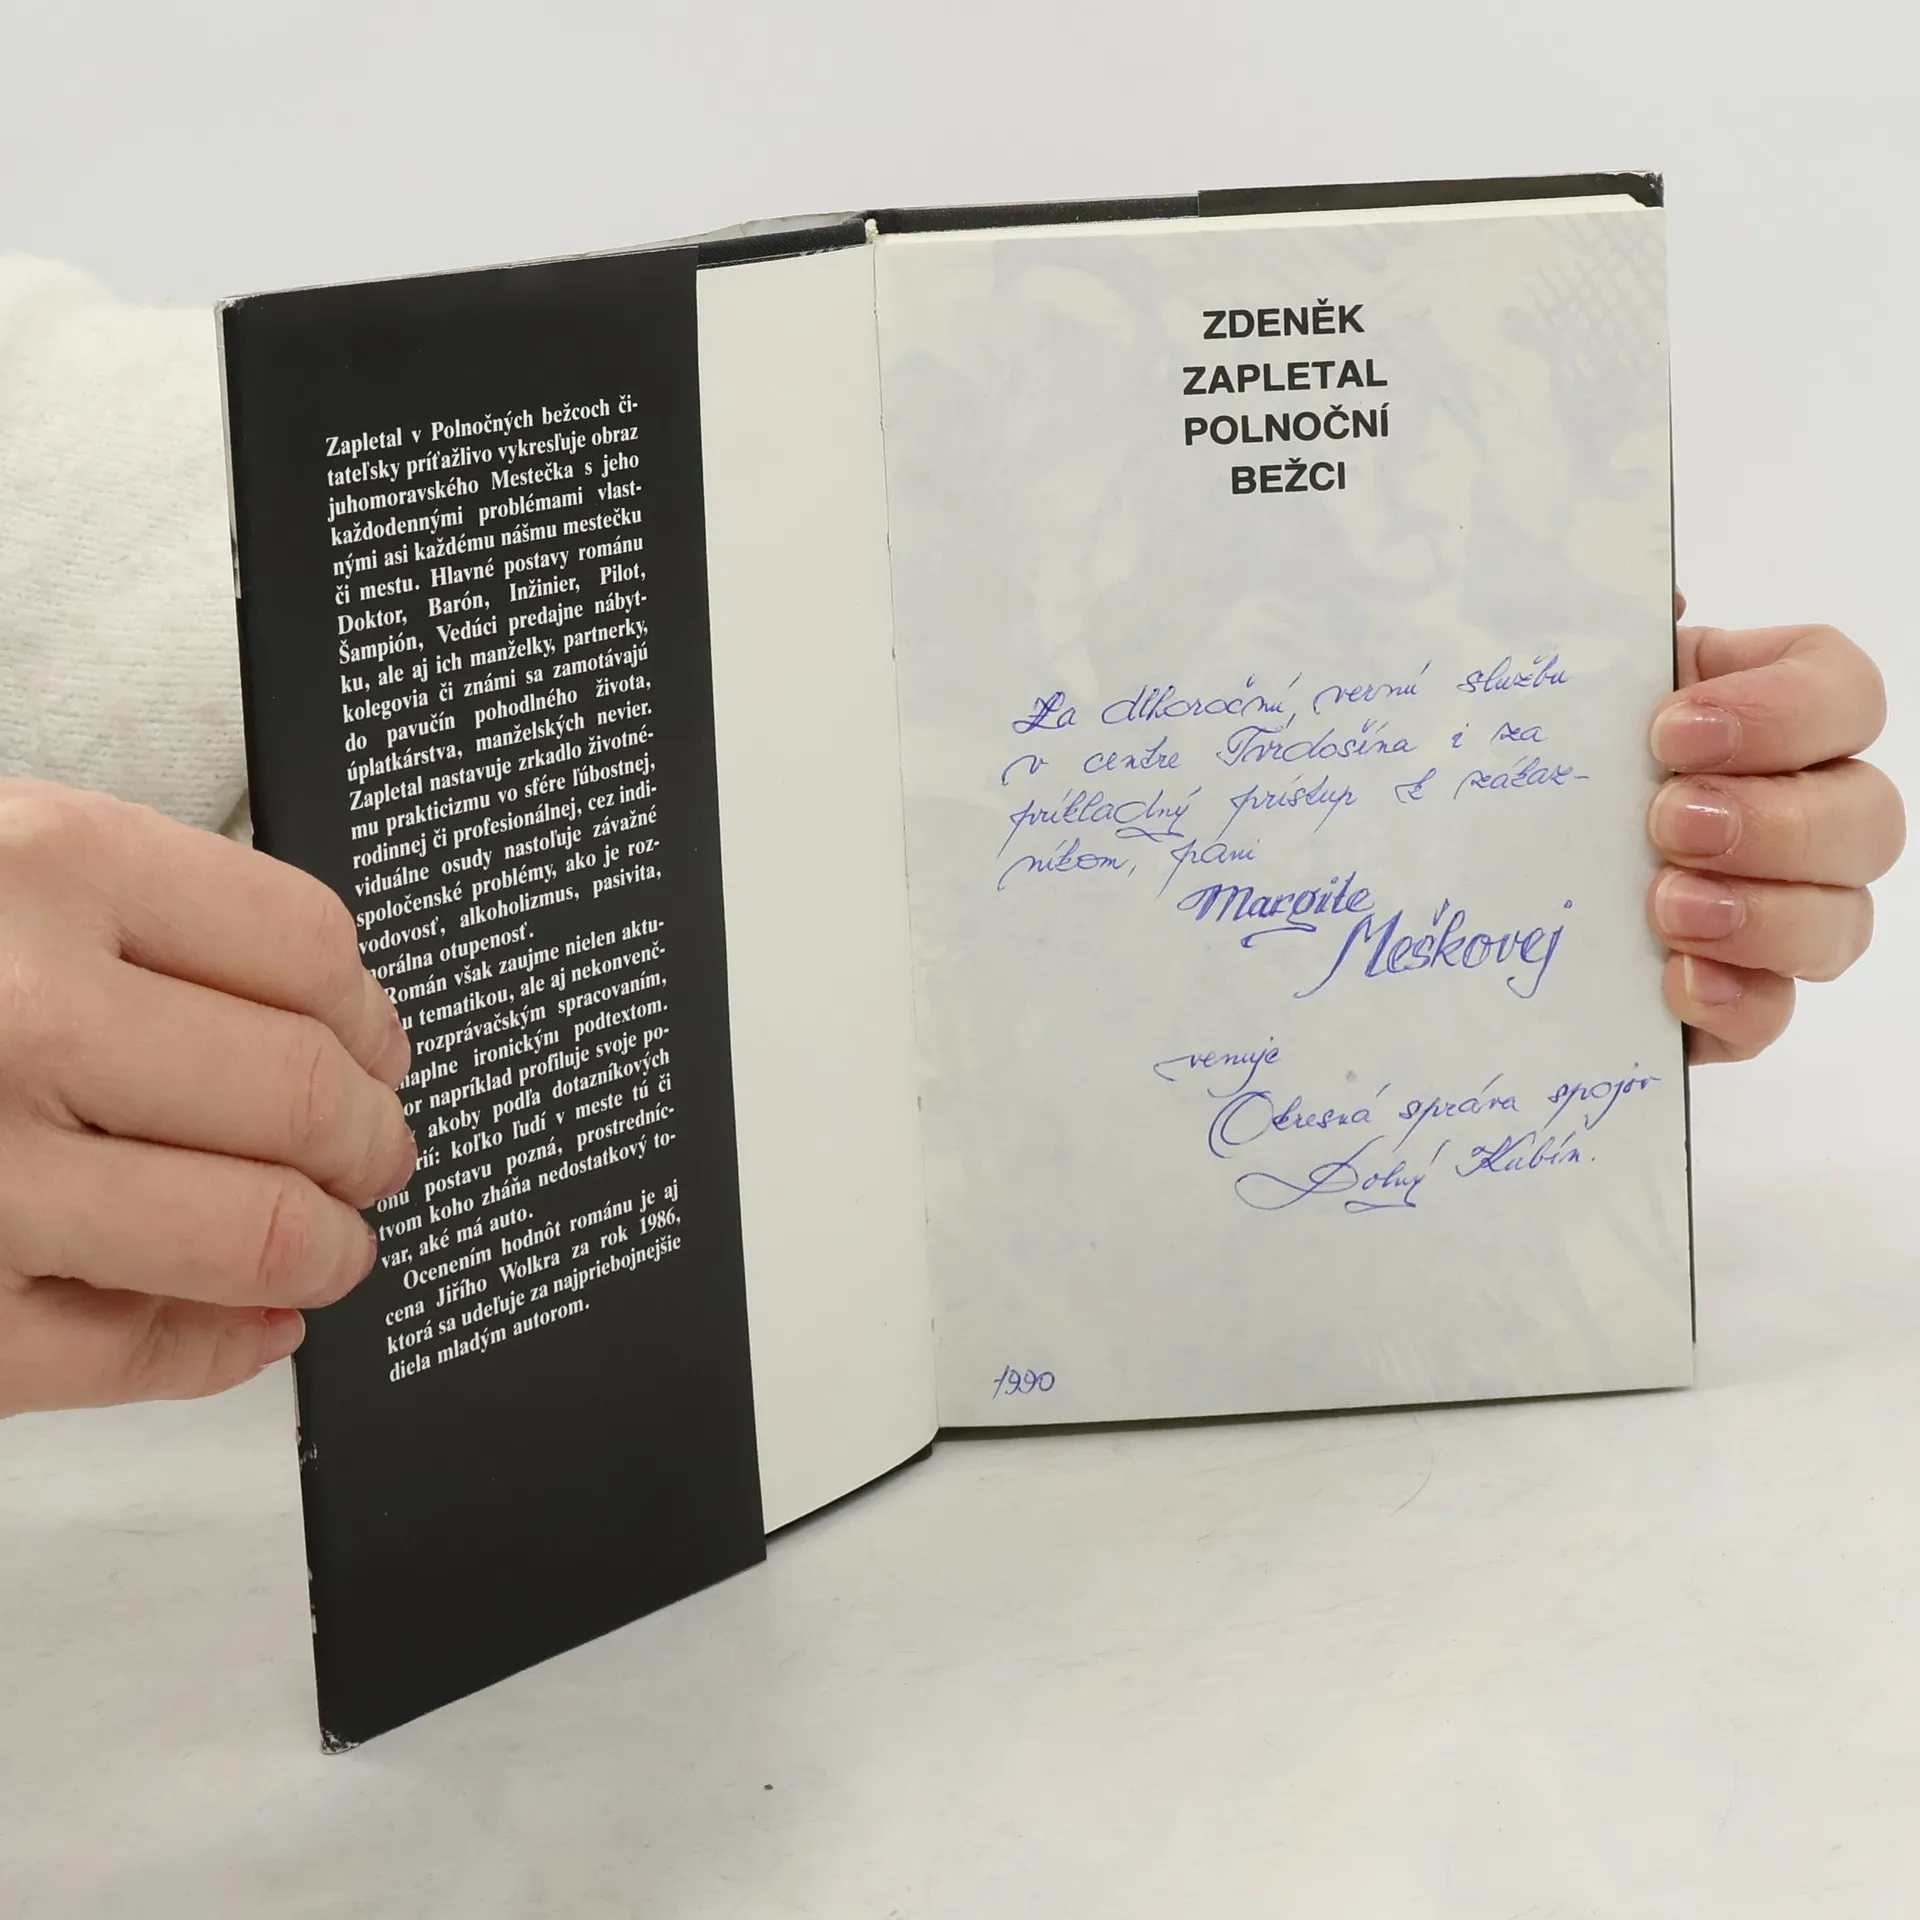 Zapletal v Polnočných bežcoch či-
tateľsky príťažlivo vykresľuje obraz
juhomoravského Mestečka s jeho
každodennými problémami vlast-
nými asi každému nášmu mestečku
či mestu. Hlavné postavy románu
Doktor, Barón, Inžinier, Pilot,
Šampión, Vedúci predajne nábyt-
ku, ale aj ich manželky, partnerky,
kolegovia či známi sa zamotávajú
do pavučín pohodlného života,
úplatkárstva, manželských nevier.
Zapletal nastavuje zrkadlo životné-
mu prakticizmu vo sfére ľúbostnej,
rodinnej či profesionálnej, cez indi-
viduálne osudy nastoľuje závažné
spoločenské problémy, ako je roz-
vodovosť, alkoholizmus, pasivita,
morálna otupenosť.
Román však zaujme nielen aktu-
u tematikou, ale aj nekonvenč-
rozprávačským spracovaním,
naplne ironickým podtextom.
or napríklad profiluje svoje po-
akoby podľa dotazníkových
rií: koľko ľudí v meste tú či
onú postavu pozná, prostredníc-
tvom koho zháňa nedostatkový to-
var, aké má auto.
Ocenením hodnôt románu je aj
cena Jiřího Wolkra za rok 1986,
ktorá sa udeľuje za najpriebojnejšie
diela mladým autorom.
ZDENĚK
ZAPLETAL
POLNOČNÍ
BEŽCI
Za dlhoročnú, vernú službu
v centre Tvrdošína i za
príkladný prístup k zákaz-
níkom, pani
Margite
Meškovej
venuje
Okresná správa spojov
Dolný Kubín.
1990